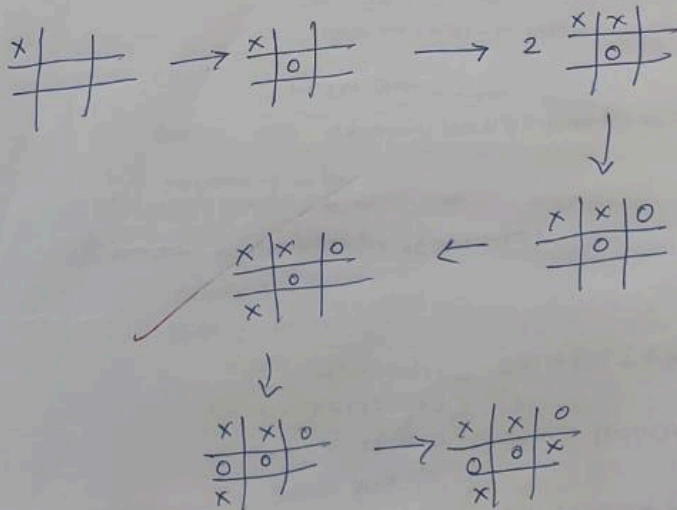 X
X
O
2
X X
O
X X O
O
X X O
O
X
X X O
O O
X
X X O
O O X
X